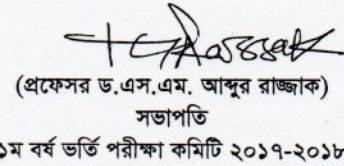 (প্রফেসর ড.এস.এম. আব্দুর রাজ্জাক)
সভাপতি
১ম বর্ষ ভর্তি পরীক্ষা কমিটি ২০১৭-২০১৮